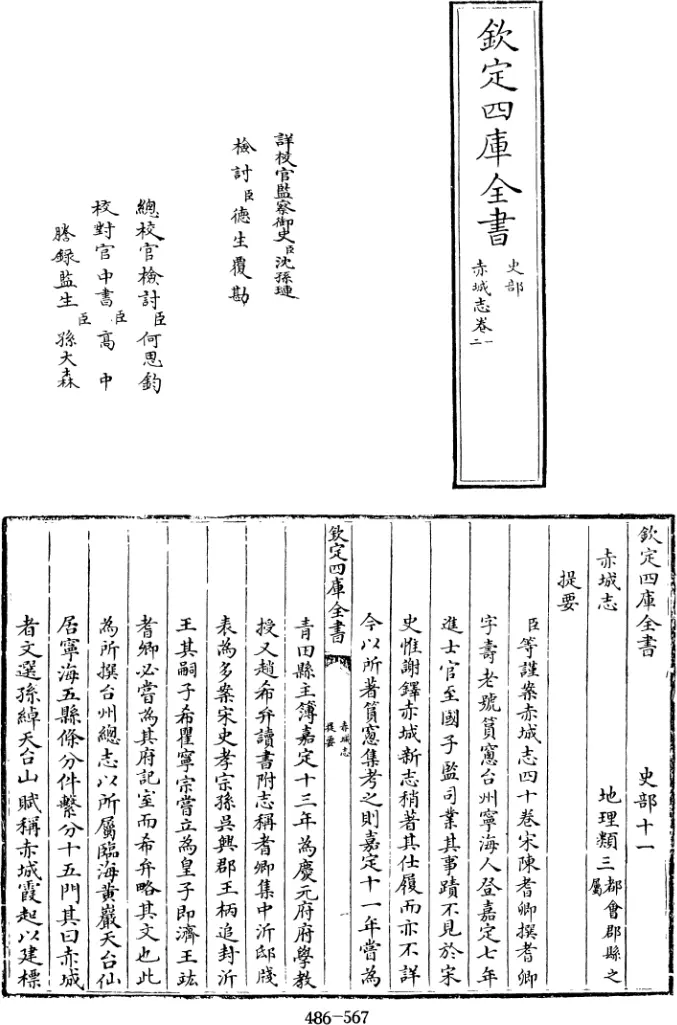 欽定四庫全書
史部
赤城志卷一
二
詳校官監察御史臣沈孫璉
檢討臣德生覆勘
總校官檢討臣何思鈞
校對官中書臣高中
謄録監生臣孫大森
欽定四庫全書 史部十一
赤城志 地理類三都㑹郡縣之屬
提要
臣等謹案赤城志四十卷宋陳耆卿撰耆卿
字壽老號篔窻台州寧海人登嘉定七年
進士官至國子監司業其事蹟不見於宋
史惟謝鐸赤城新志稍著其仕履而亦不詳
今以所著篔窻集考之則嘉定十一年嘗為
欽定四庫全書
赤城志
提要
青田縣主簿嘉定十三年為慶元府府學教
授又趙希弁讀書附志稱耆卿集中沂邸牋
表為多案宋史孝宗孫吳興郡王柄追封沂
王其嗣子希瞿寧宗嘗立為皇子即濟王竑
耆卿必嘗為其府記室而希弁略其文也此
為所撰台州總志以所屬臨海黄巖天台仙
居寧海五縣條分件繫分十五門其曰赤城
者文選孫綽天台山賦稱赤城霞起以建標
486-567